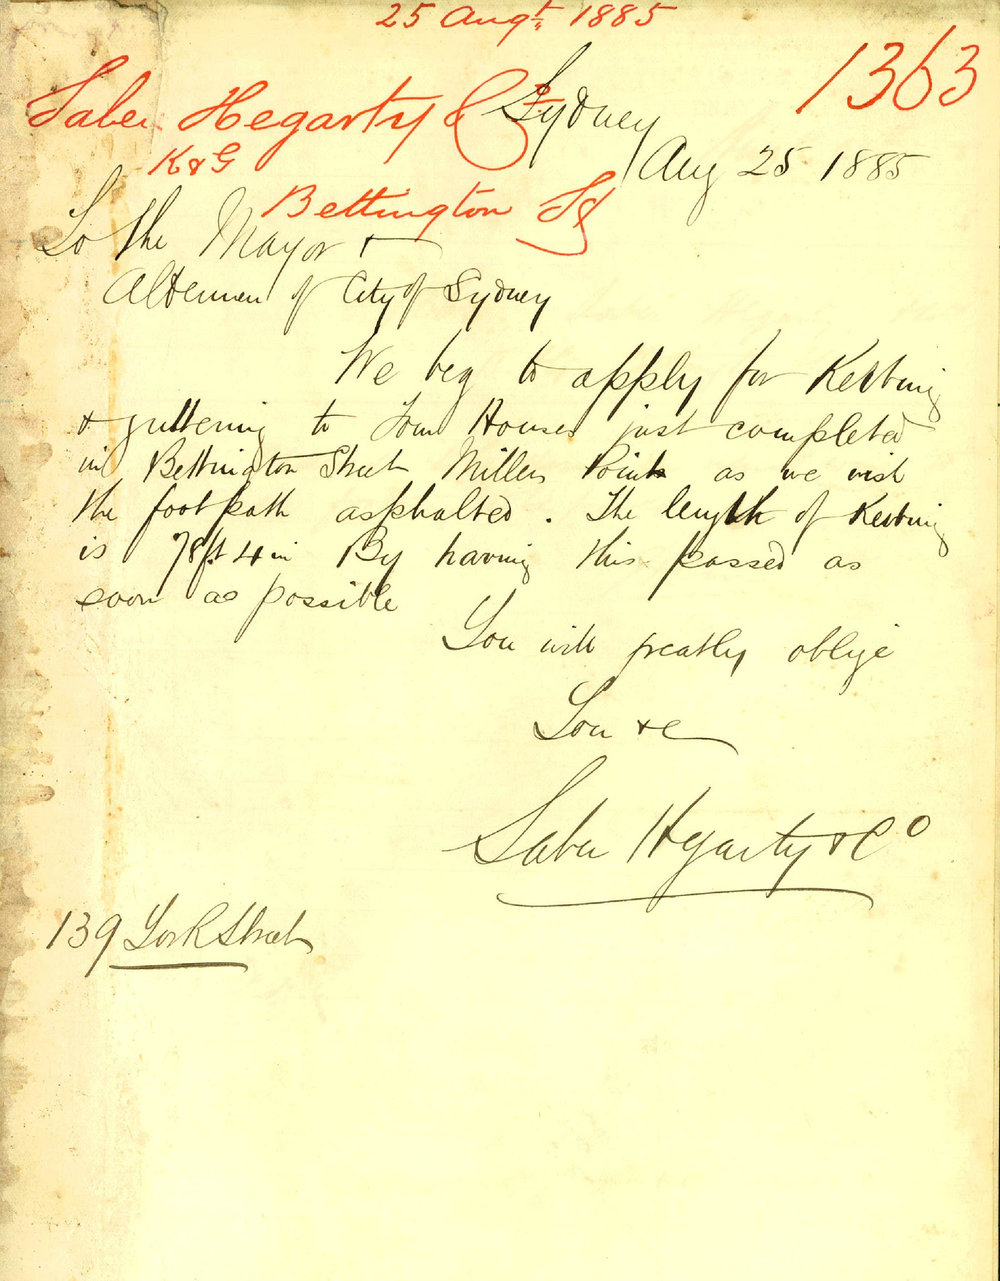 25 Augt. 1885
1363
Saber Hegarty & Co
K & G
Bettington St
Sydney
Aug 25 1885
To the Mayor &
Aldermen of City of Sydney
We beg to apply for Kerbing
& guttering to Four Houses just completed
in Bettington Street Millers Point as we wish
the footpath asphalted. The length of Kerbing
is 78ft 4in By having this passed as
soon as possible
You will greatly oblige
You &c
Saber Hegarty & Co
139 York Street